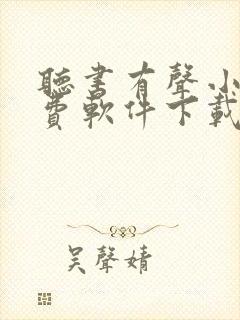 聽書有聲小
費軟件下載
吴聲婧